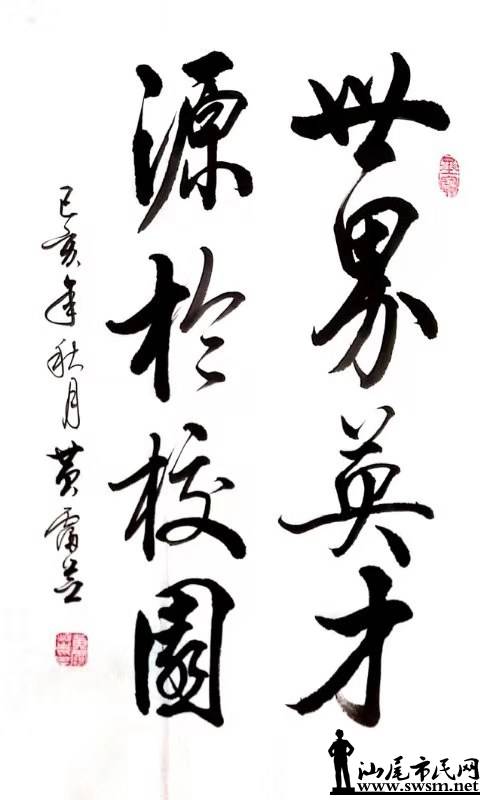 世界英才
源於校園
己亥年秋月黄
汕尾市民网
www.swsm.net